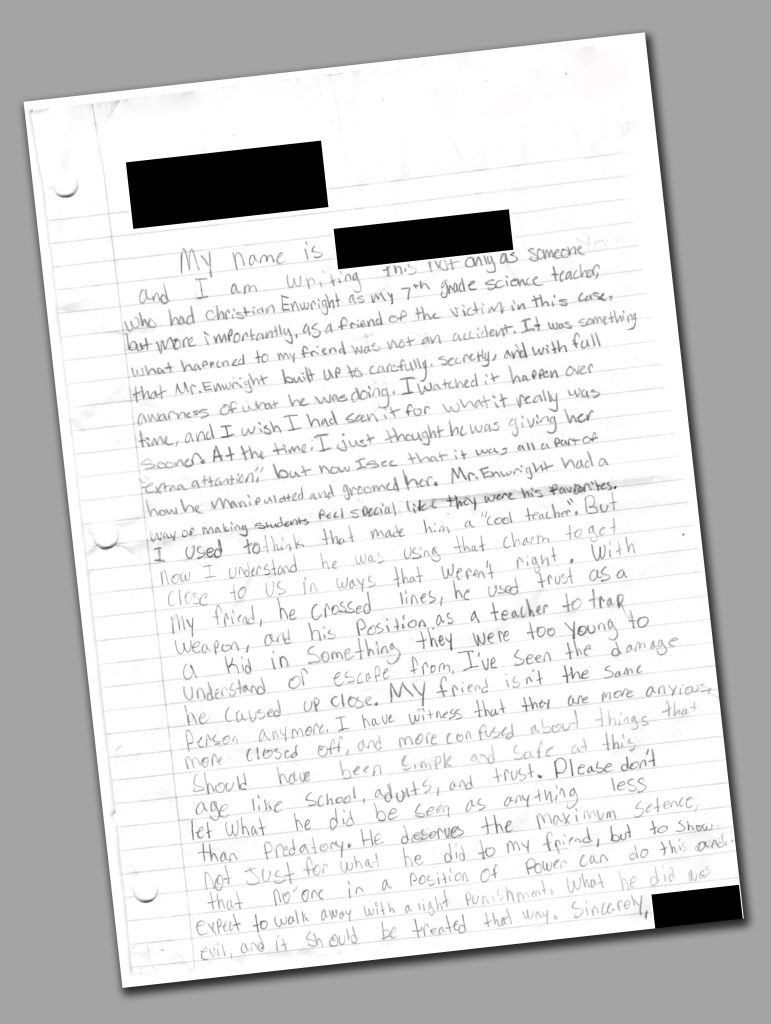 My name is
and I am writing this not only as someone
who had christian Enwright as my 7th grade science teacher,
but more importantly, as a friend of the victim in this case,
what happened to my friend was not an accident. It was something
that Mr. Enwright built up to carefully, secretly, and with full
awarness of what he was doing. I watched it happen over
time, and I wish I had seen it for what it really was
sooner. At the time, I just thought he was giving her
"extra attention," but now I see that it was all a part of
how he manipulated and groomed her. Mr. Enwright had a
way of making students feel special like they were his favorites.
I used to think that made him a "cool teacher". But
now I understand he was using that charm to get
close to us in ways that weren't right. With
my friend, he crossed lines, he used trust as a
weapon, and his position as a teacher to trap
a kid in something they were too young to
understand or escape from. I've seen the damage
he caused up close. My friend isn't the same
person anymore. I have witness that they are more anxious,
more closed off, and more confused about things that
should have been simple and safe at this
age like school, adults, and trust. Please don't
let what he did be seen as anything less
than predatory. He deserves the maximum setence,
not just for what he did to my friend, but to show
that no one in a position of power can do this and
expect to walk away with a light punishment. What he did was
evil, and it should be treated that way. Sincerely,